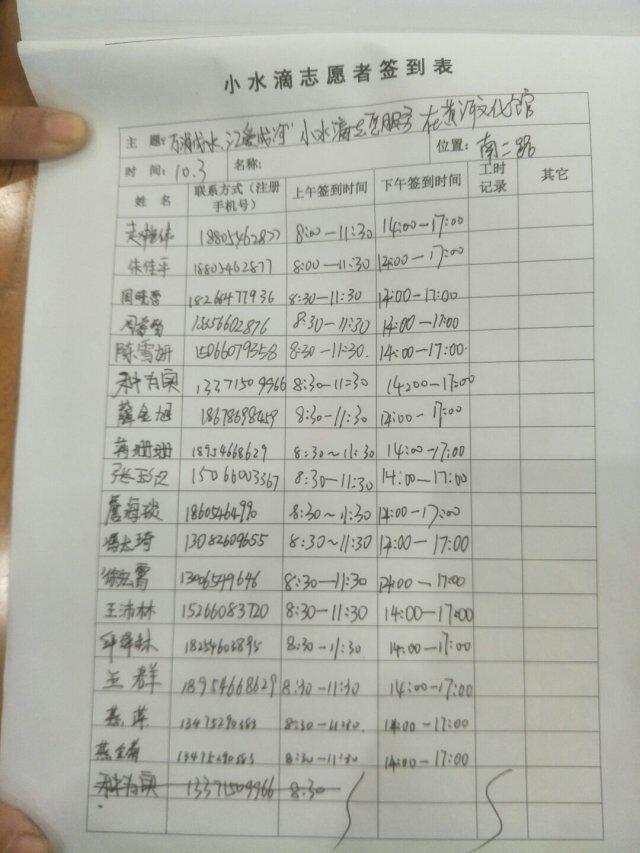 小水滴志愿者签到表
主 题: 小水滴志愿服务 在黄河文化馆
位置: 南二路
时 间: 10.3 名称:
姓 名 联系方式（注册手机号） 上午签到时间 下午签到时间 工时记录 其它
18805462877 8:00—11:30 14:00—17:00
朱佳平 18805462877 8:00—11:30 14:00—17:00
周晓雪 18268477936 8:30—11:30 14:00—17:00
13656602876 8:30—11:30 14:00—17:00
陈雪妍 15066079358 8:30—11:30. 14:00—17:00.
13371509966 8:30—11:30 14:00—17:00
薛金旭 18678698459 8:30—11:30 14:00—17:00
蒋珊珊 18954668629 8:30~11:30 14:00—17:00
15066003367 8:30—11:30 14:00—17:00
詹海波 18605464990 8:30~11:30 14:00—17:00
冯太琦 13082609655 8:30~11:30 14:00—17:00
徐宏霄 13006549646 8:30—11:30 14:00—17:00
王沛林 15266083720 8:30—11:30 14:00—17:00
18254603895 8:30-11:30 14:00—17:00
王群 18954668629 8:30-11:30 14:00—17:00
燕萍 13475290583 8:30—11:30. 14:00—17:00
13475290583 8:30—11:30 14:00—17:00
13371509966 8:30—